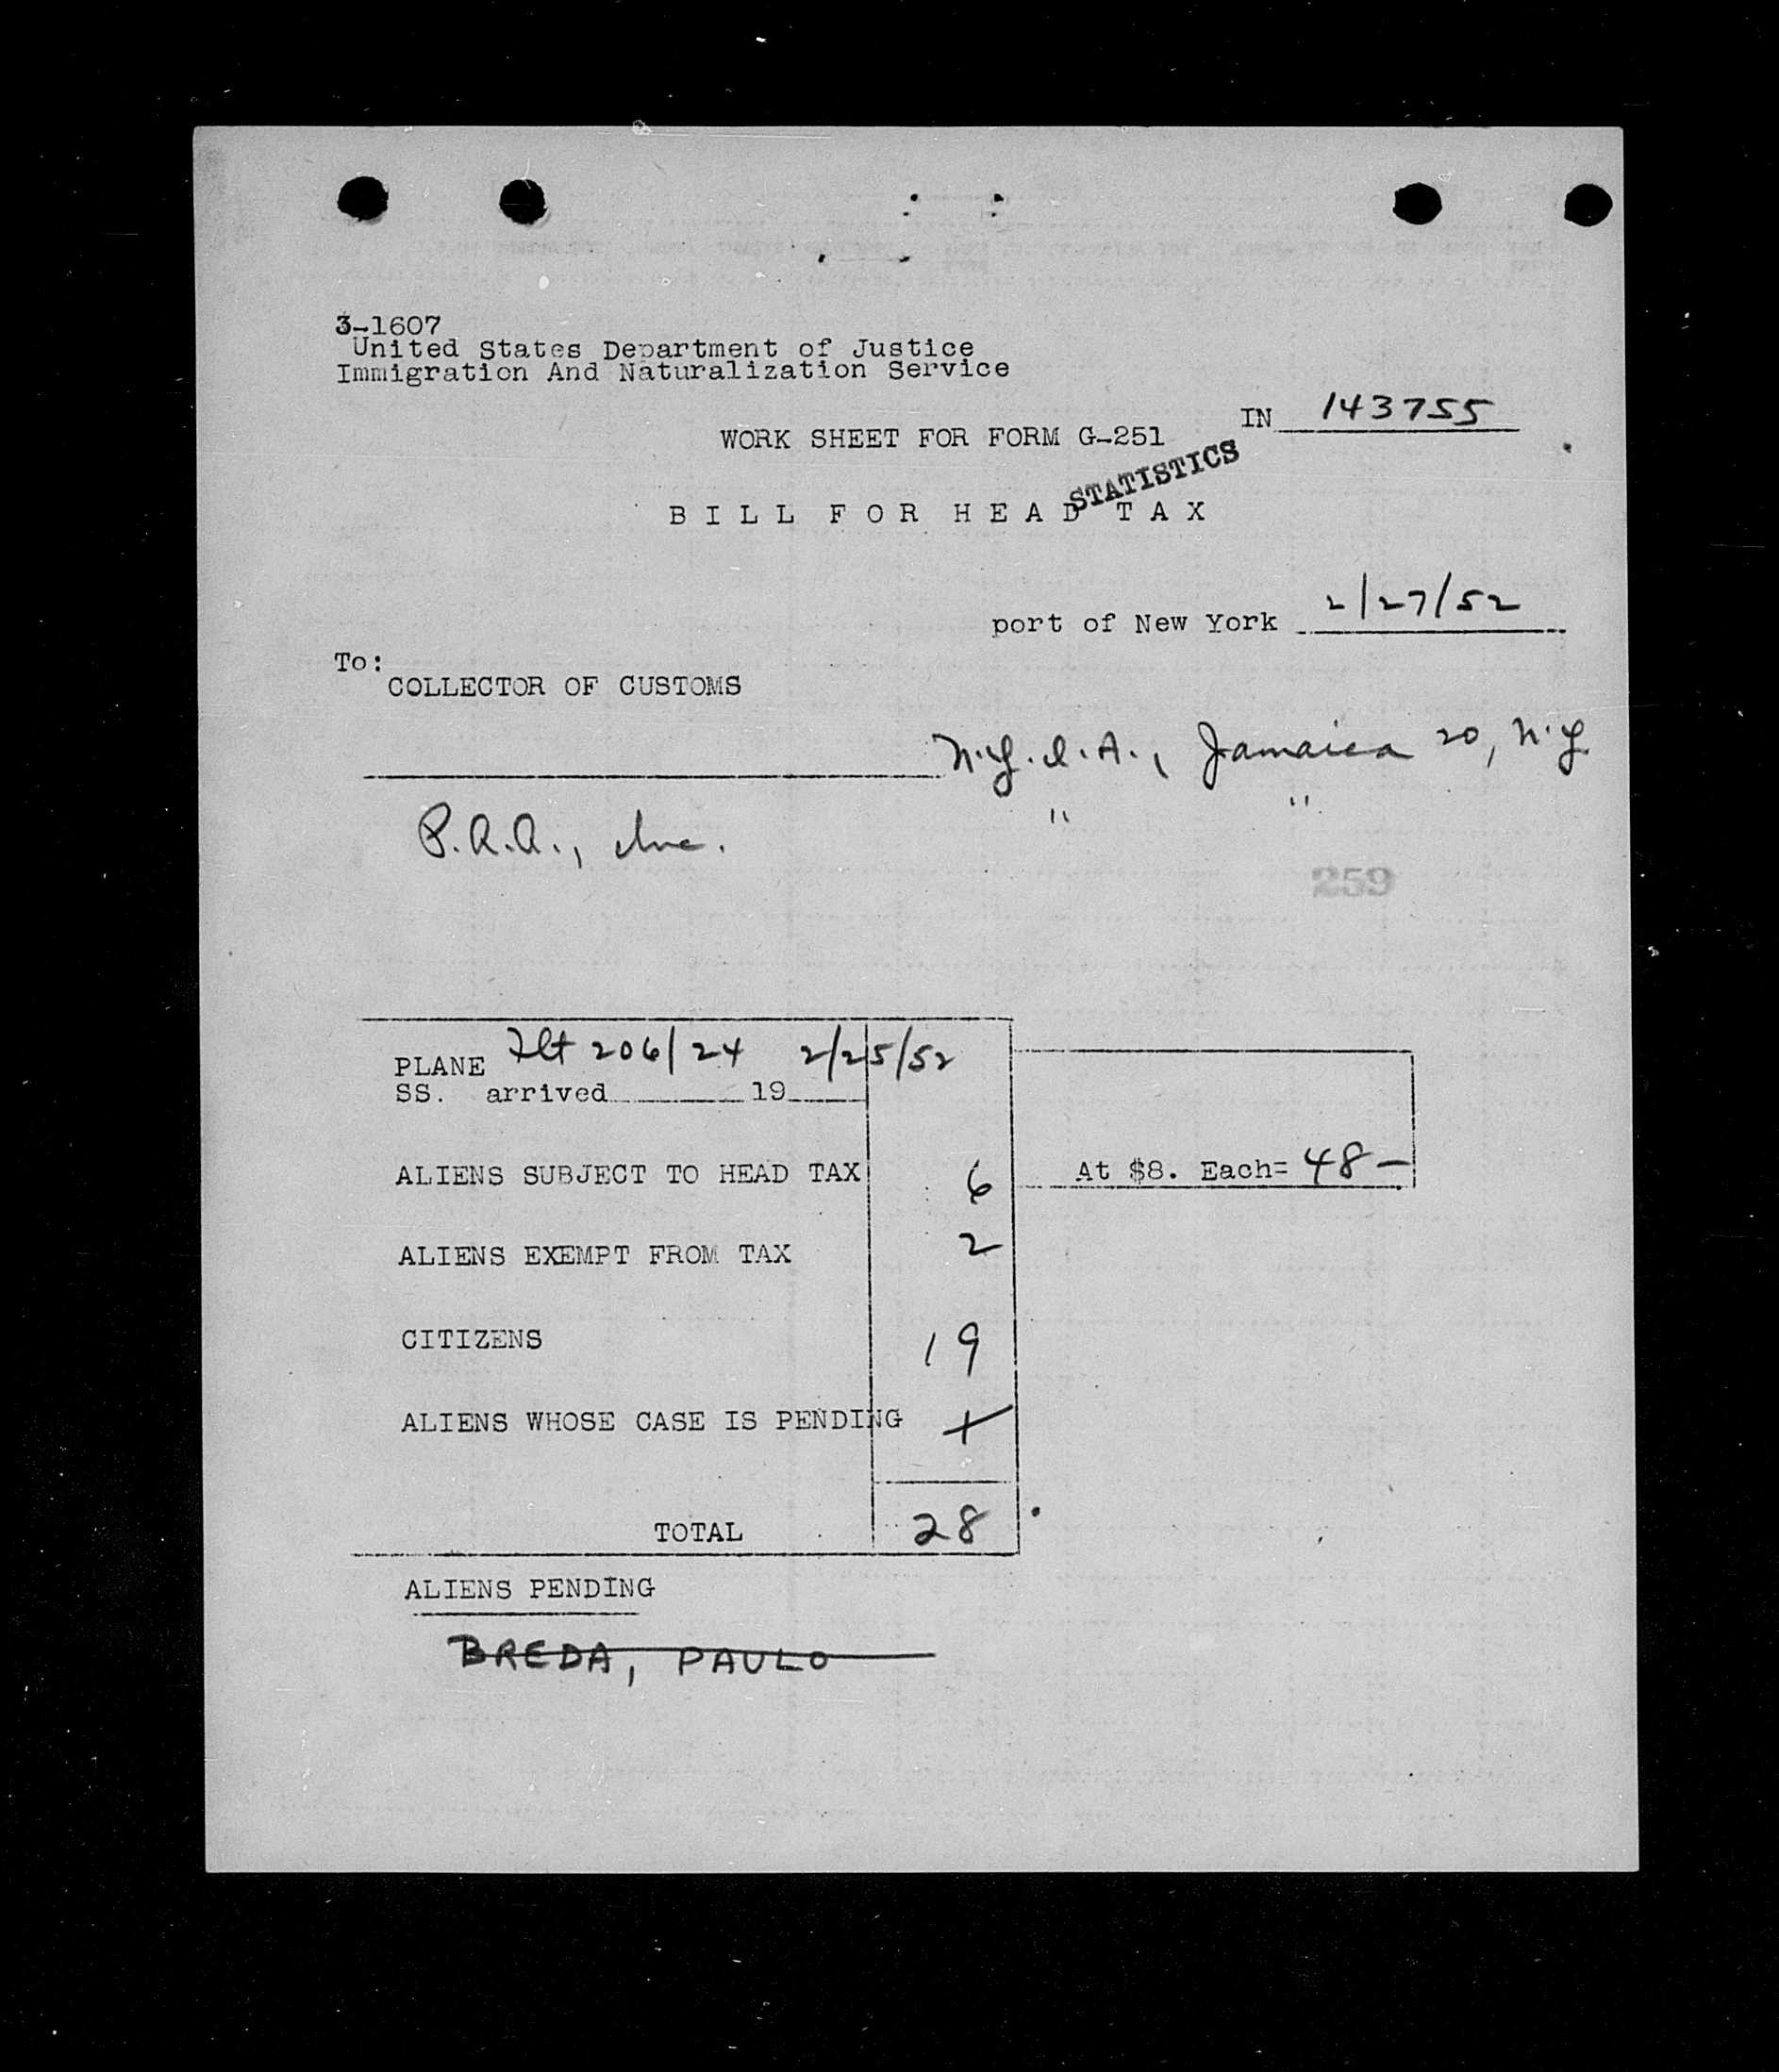 3-1607
United States Department of Justice
Immigration And Naturalization Service
IN 143755
WORK SHEET FOR FORM G-251
STATISTICS
BILL FOR HEAD TAX
port of New York 2/27/52
To:
COLLECTOR OF CUSTOMS
N.Y.I.A., Jamaica 20, N.Y
P.A.A., Inc. " "
259
PLANE Flt 206/24 2/25/52
SS. arrived 19
ALIENS SUBJECT TO HEAD TAX 6 At $8. Each= 48-
ALIENS EXEMPT FROM TAX 2
CITIZENS 19
ALIENS WHOSE CASE IS PENDING 1
TOTAL 28
ALIENS PENDING
BREDA, PAULO